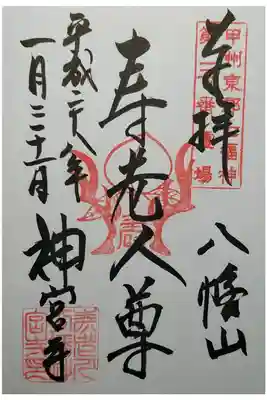 奉拝
甲州京都七福神
第二番霊場
八幡山
寿老人尊
平成二十八年
一月三十一日
神宮寺